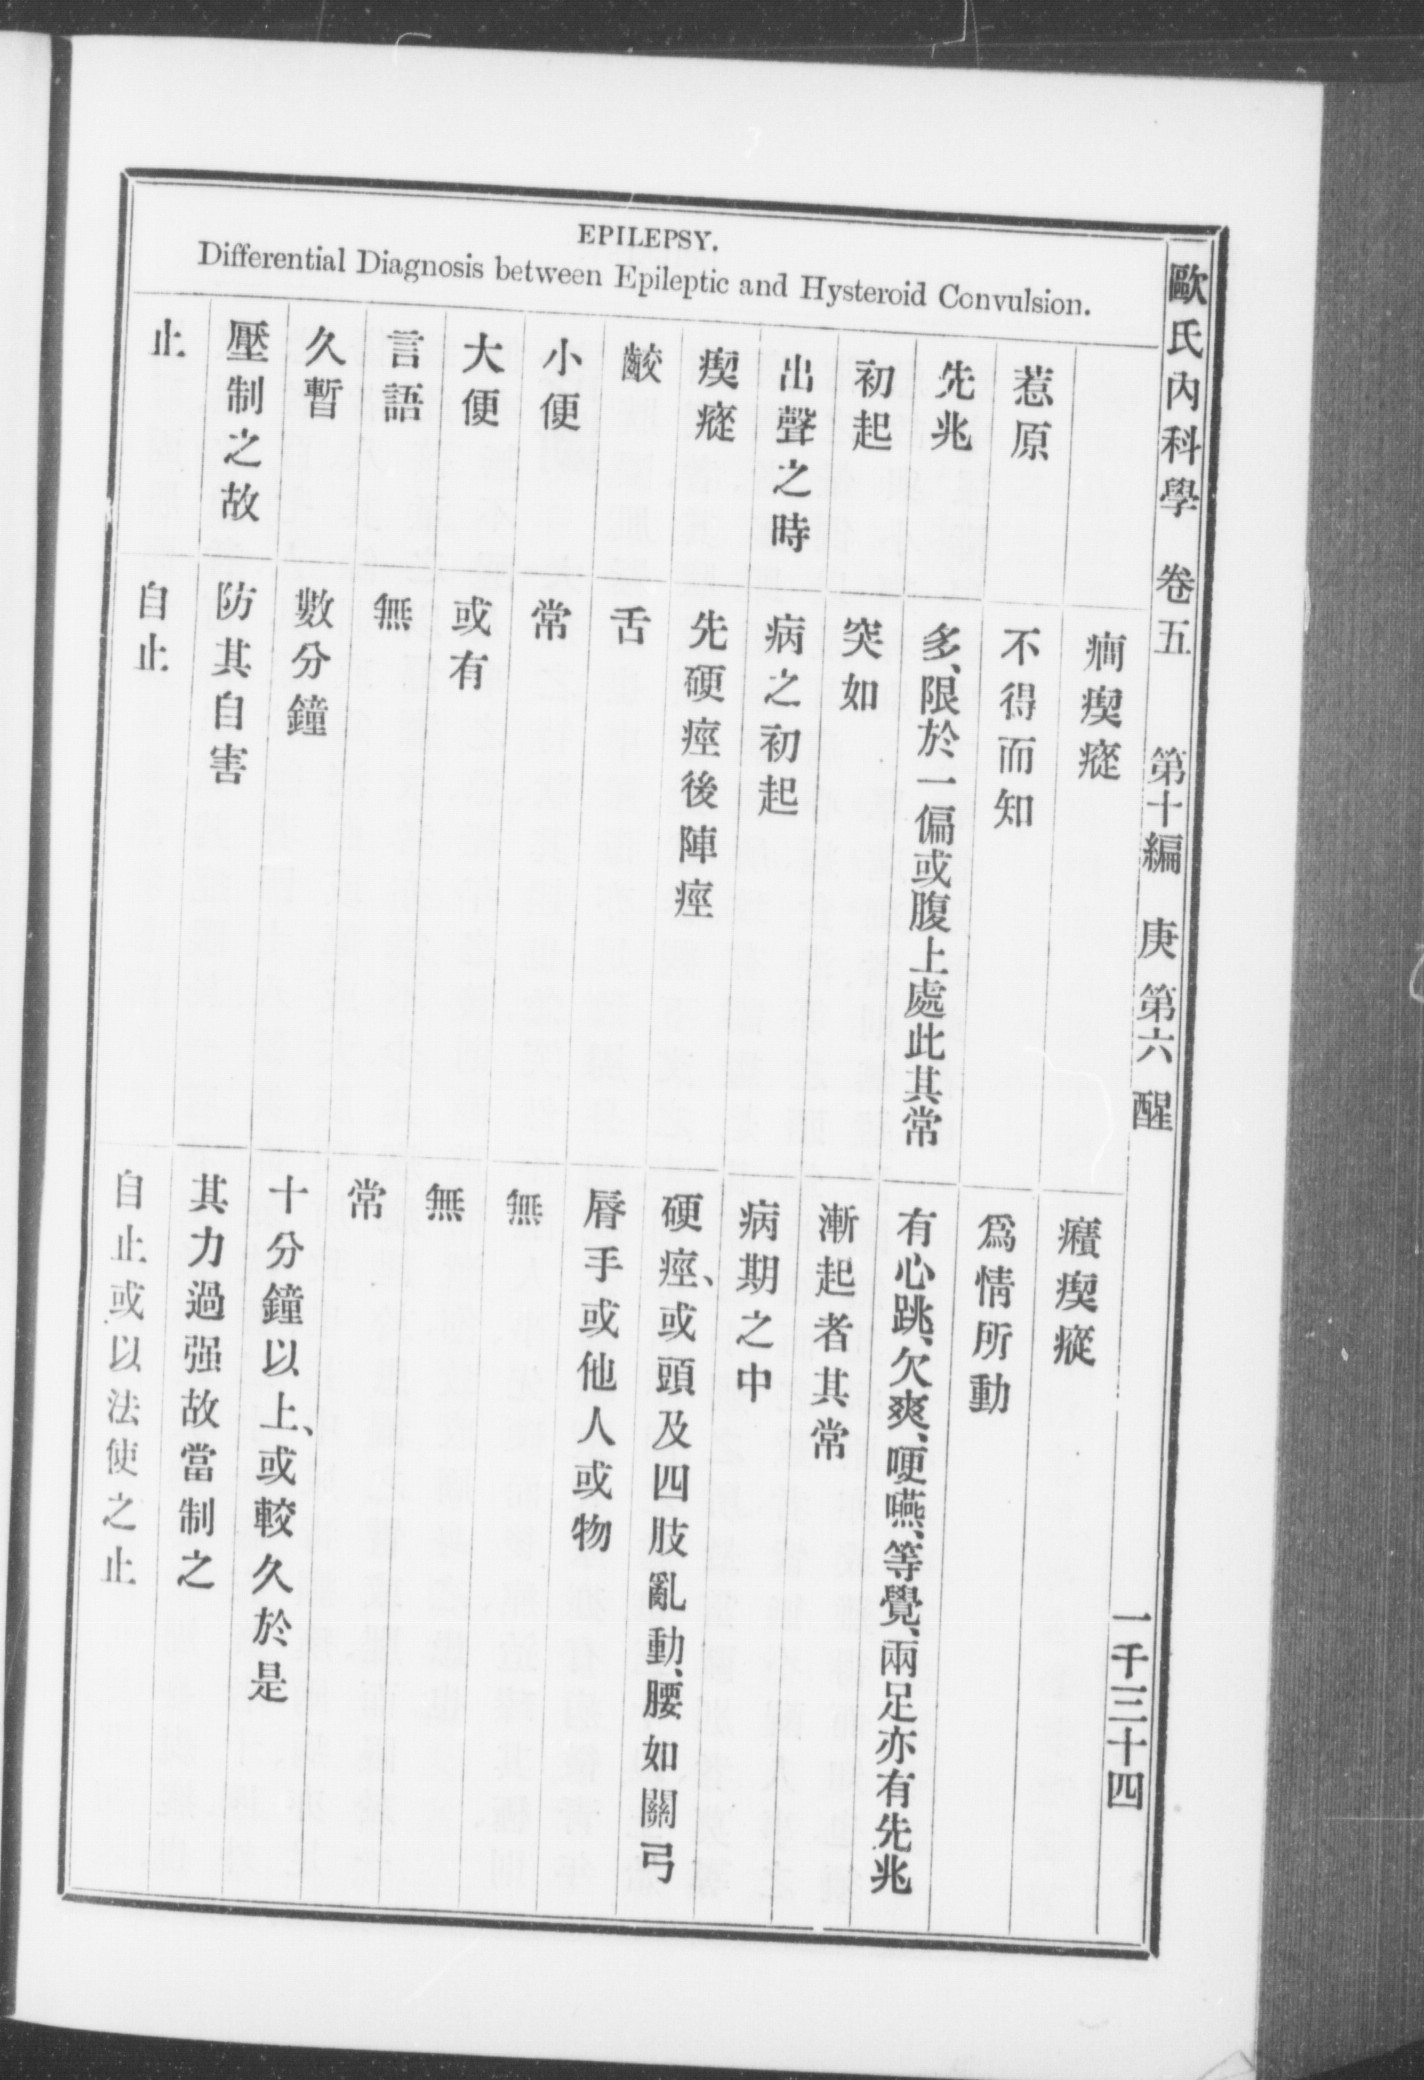 歐氏內科學 卷五 第十編 庚 第六 醒 一千三十四
EPILEPSY.
Differential Diagnosis between Epileptic and Hysteroid Convulsion.
癇瘈瘲 癪瘈瘲
惹原 不得而知 爲情所動
先兆 多、限於一偏或腹上處此其常 有心跳、欠爽、哽嚥、等覺、兩足亦有先兆
初起 突如 漸起者其常
出聲之時 病之初起 病期之中
瘈瘲 先硬痙後陣痙 硬痙、或頭及四肢亂動、腰如關弓
齩 舌 脣手或他人或物
小便 常 無
大便 或有 無
言語 無 常
久暫 數分鐘 十分鐘以上、或較久於是
壓制之故 防其自害 其力過强故當制之
止 自止 自止或以法使之止